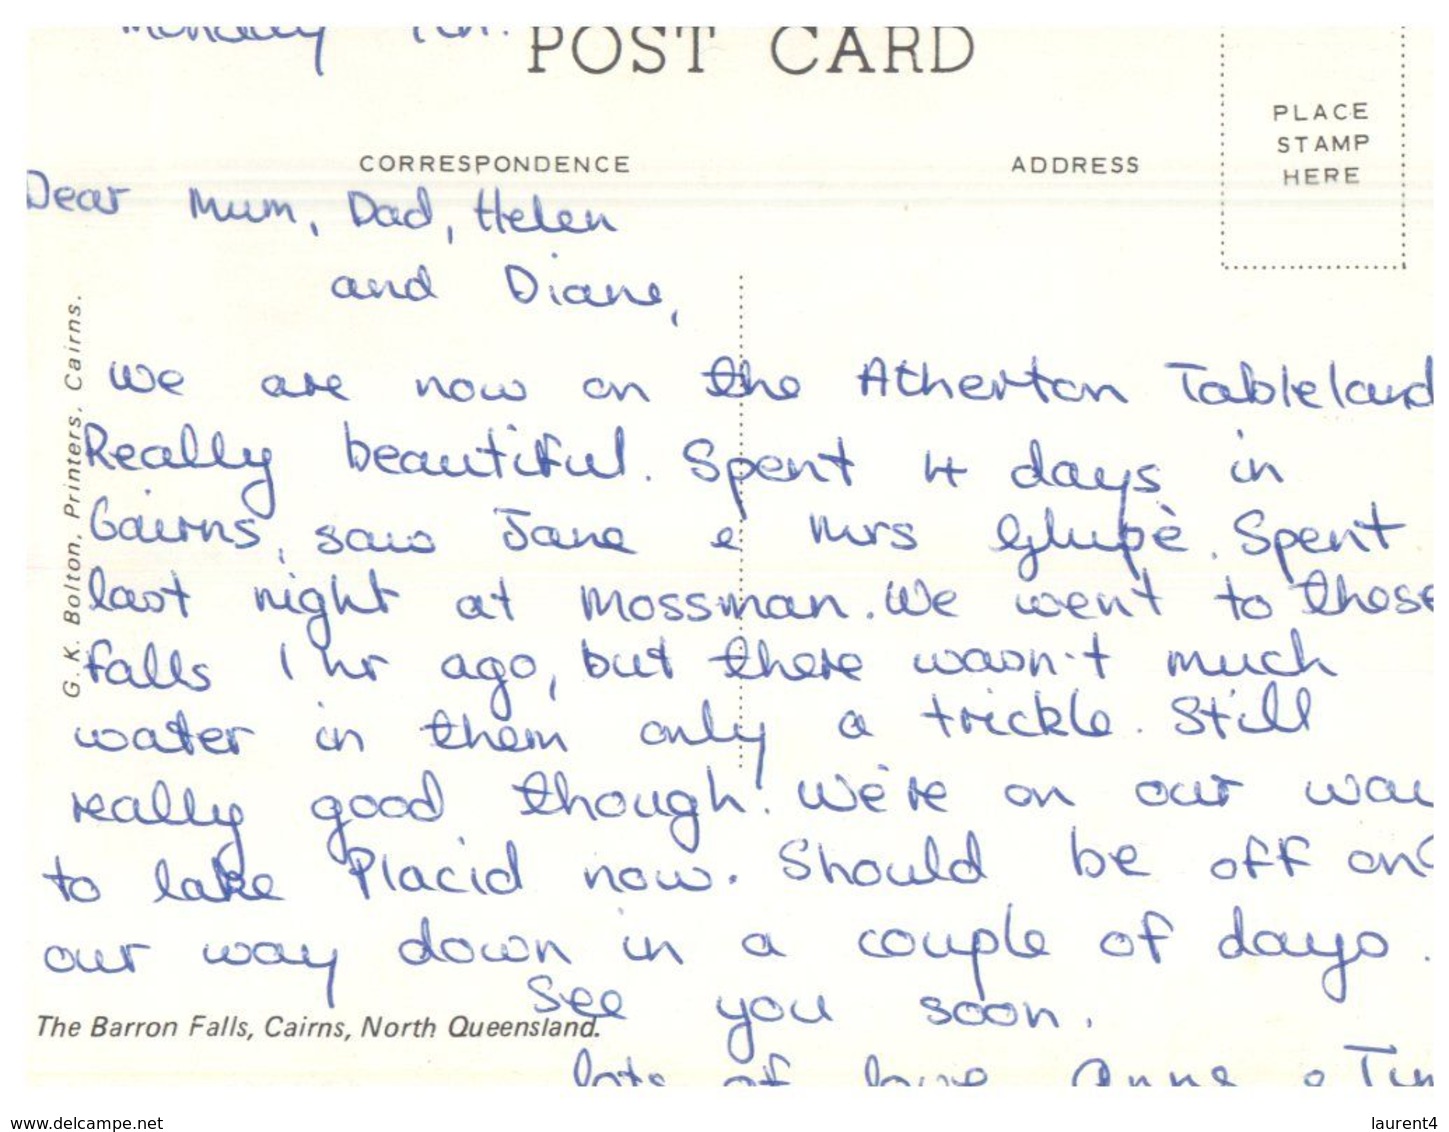 Monday
POST CARD
PLACE
STAMP
HERE
CORRESPONDENCE
ADDRESS
Dear Mum, Dad, Helen
and Diane,
We are now on the Atherton Tableland
Really beautiful. Spent 4 days in
Cairns, saw Jane & Mrs Glupè. Spent
last night at Mossman. We went to these
falls 1 hr ago, but there wasn't much
water in them only a trickle. Still
really good though! We're on our way
to lake Placid now. Should be off on
our way down in a couple of days.
See you soon.
lots of love Anne & Tim
G. K. Bolton, Printers, Cairns.
The Barron Falls, Cairns, North Queensland.
www.delcampe.net
laurent4